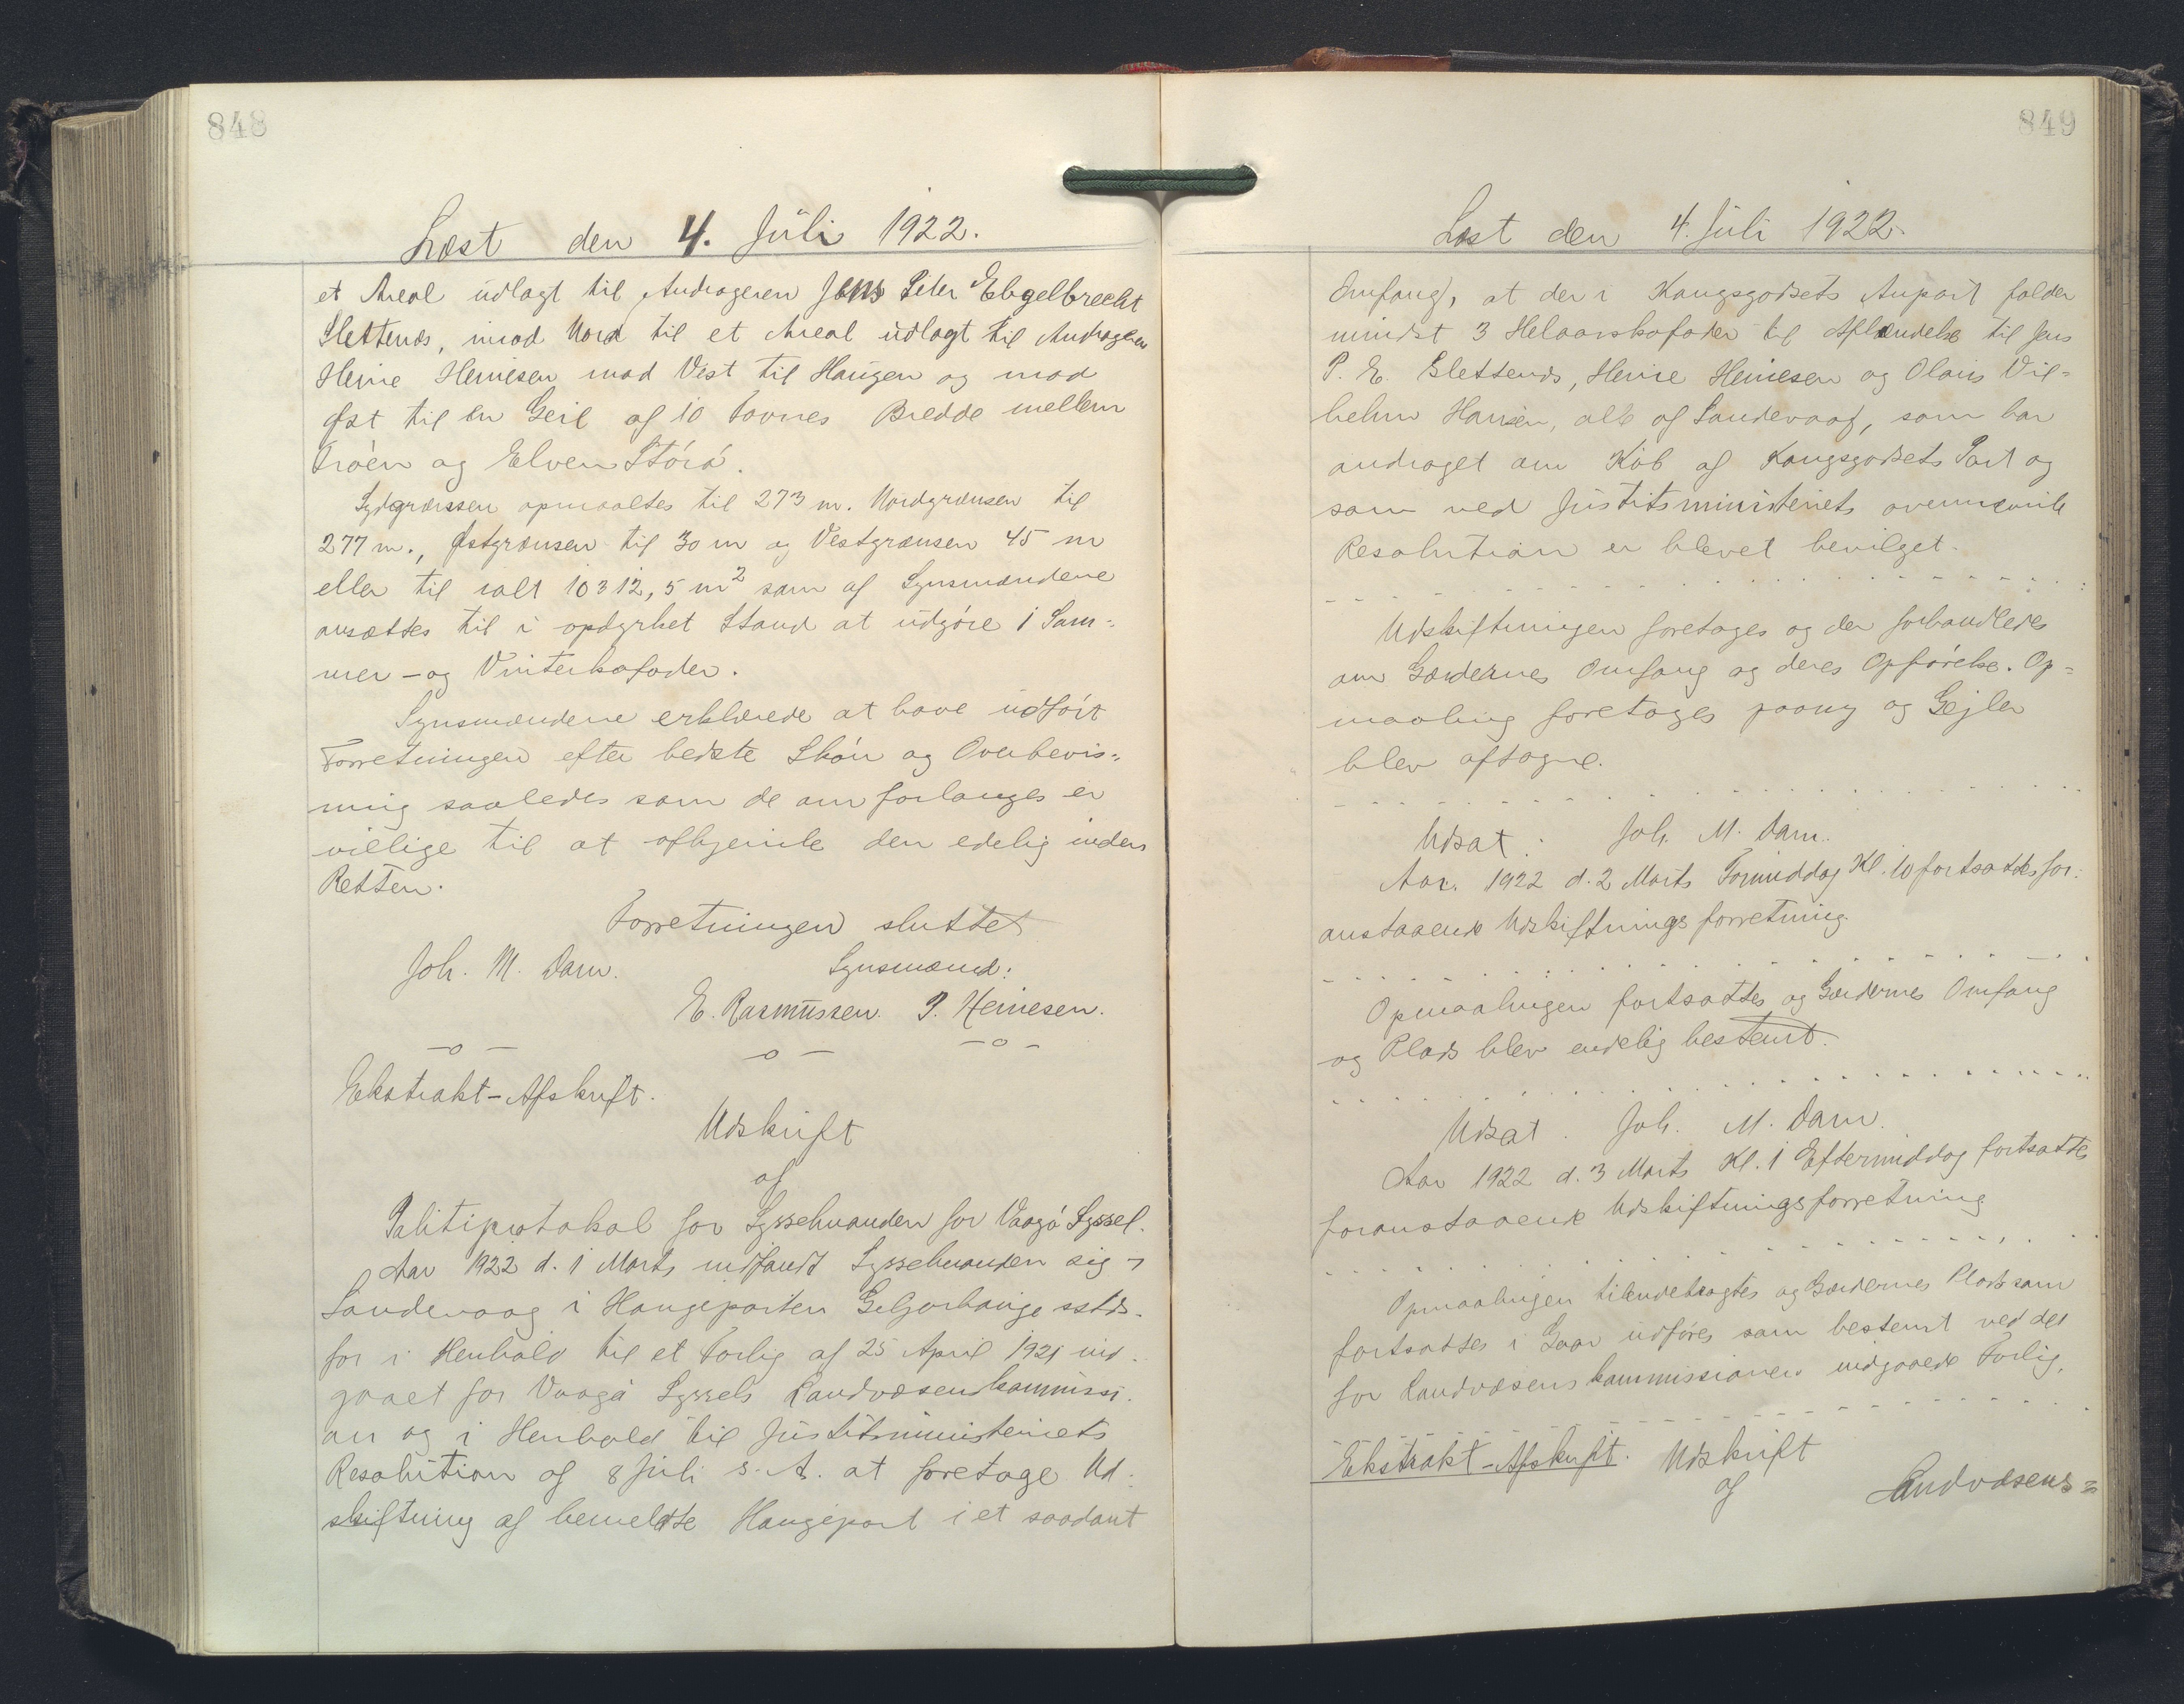 848
Læst den 4. Juli 1922.
et Areal udlagt til Andrageren Jens Peter Engelbrecht
Slettenes, mod Nord til et Areal udlagt til Andrageren
Heine Heinesen mod Vest til Haugen og mod
Øst til en Geil af 10 Favnes Bredde mellem
Trøen og Elven Stórá.
Sydgrænsen opmaaltes til 273 m. Nordgrænsen til
277 m., Østgrænsen til 30 m og Vestgrænsen 45 m
eller til ialt 10312,5 m² som af Synsmændene
ansættes til i opdyrket Stand at udgøre 1 Som-
mer- og Vinterkofoder.
Synsmændene erklærede at have udført
Forretningen efter bedste Skøn og Overbevis-
ning saaledes som de om forlanges er
villige til at afhjemle den edelig inden
Retten.
Forretningen sluttet
Joh. M. Dam. Synsmænd:
E. Rasmussen. P. Heinesen.
-o- -o- -o-
Ekstrakt-Afskrift.
Udskrift
af
Politiprotokol for Sysselmanden for Vaagø Syssel.
Aar 1922 d. 1 Marts indfandt Sysselmanden sig i
Sandevaag i Haugeparten sstds.
for i Henhold til et Forlig af 25 April 1921 ind-
gaaet for Vaagø Syssels Landvæsenskommissi-
on og i Henhold til Justitsministeriets
Resolution af 8 Juli s. A. at foretage Ud-
skiftning af bemeldte Haugepart i et saadant
849
Læst den 4. Juli 1922.
Omfang, at der i Kongsgodsets Anpart falder
mindst 3 Helaarskofoder til Afhændelse til Jens
P. E. Slettenes, Heine Heinesen og Olaus Vil-
helm Hansen, alle af Sandevaag, som har
andraget om Køb af Kongsgodsets Part og
som ved Justitsministeriets ovennævnte
Resolution er blevet bevilget.
Udskiftningen foretages og der forhandledes
om Gærdernes Omfang og deres Opførelse. Op-
maaling foretages paany og Gejler
blev aftagne.
Udsat. Joh. M. Dam.
Aar. 1922 d. 2 Marts Formiddag Kl. 10 fortsattes for-
anstaaende Udskiftningsforretning
Opmaalingen fortsattes og Gærdernes Omfang
og Plads blev endelig bestemt.
Udsat. Joh. M. Dam.
Aar 1922 d. 3 Marts Kl. 1 Eftermiddag fortsattes
foranstaaende Udskiftningsforretning
Opmaalingen tilendebragtes og Gærdernes Plads som
fortsattes i Gaar udføres som bestemt ved det
for Landvæsenskommissionen indgaaede Forlig.
Ekstrakt-Afskrift. Udskrift
af Landvæsens-